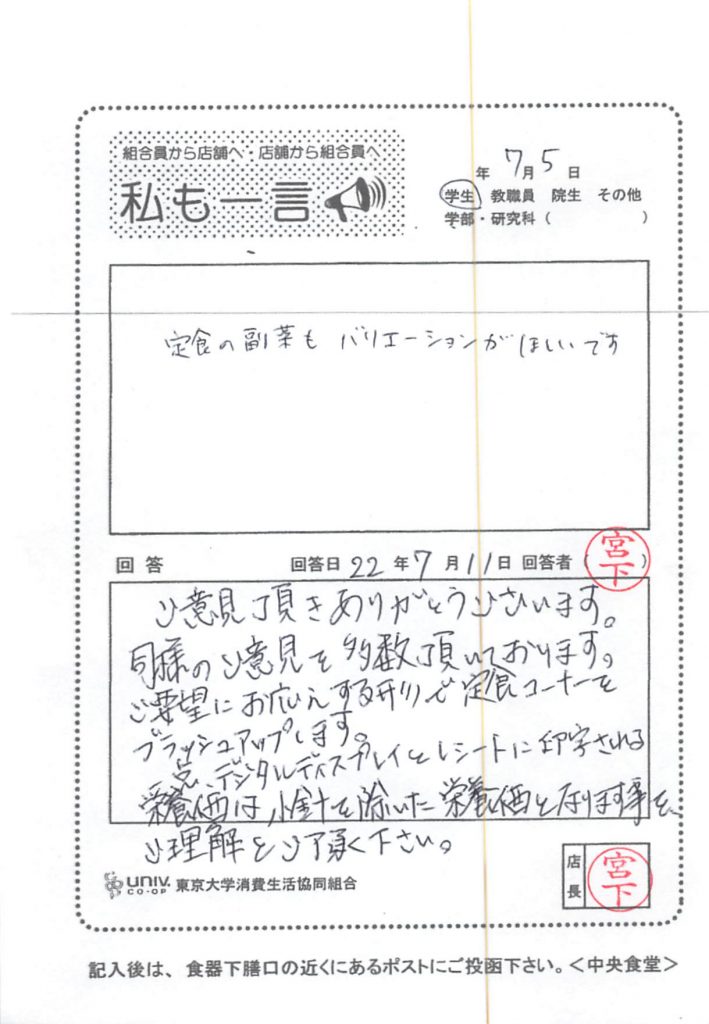 組合員から店舗へ・店舗から組合員へ
私も一言
年 7月5日
学生 教職員 院生 その他
学部・研究科( )
定食の副菜も バリエーションがほしいです
回答 回答日 22年7月11日 回答者(宮下)
ご意見頂きありがとうございます。
同様のご意見を多数頂いております。
ご要望にお応えする形で定食コーナーを
ブラッシュアップします。
尚、デジタルディスプレイとレシートに印字される
栄養価は、小鉢を除いた栄養価となります事を、
ご理解とご了承下さい。
店長 宮下
UNIV. CO-OP 東京大学消費生活協同組合
記入後は、食器下膳口の近くにあるポストにご投函下さい。<中央食堂>